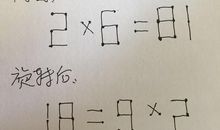 2×6=81
旋转后
18=9×2